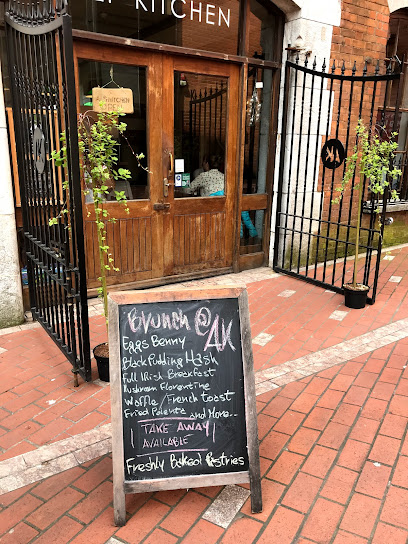 KITCHEN
OPEN
Brunch @ AK
Eggs Benny
Black Pudding Hash
Full IRish Breakfast
Mushroom Florentine
Waffle / French toast
Fried Polenta and More..
TAKE AWAY
AVAILABLE
Freshly Baked Pastries